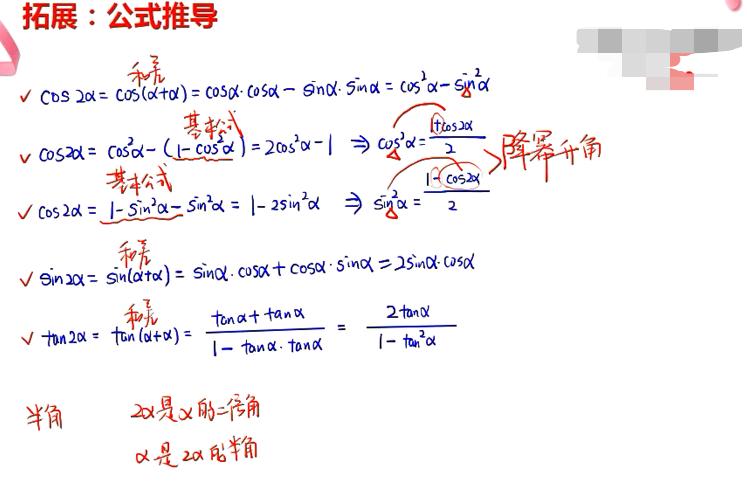 拓展：公式推导
和差
✓ cos 2α = cos(α+α) = cosα·cosα − sinα·sinα = cos²α − sin²α
基本公式
✓ cos2α = cos²α − (1−cos²α) = 2cos²α−1 ⇒ cos²α = (1+cos2α)/2
降幂升角
基本公式
✓ cos2α = 1−sin²α − sin²α = 1−2sin²α ⇒ sin²α = (1−cos2α)/2
和差
✓ sin2α = sin(α+α) = sinα·cosα + cosα·sinα = 2sinα·cosα
和差
✓ tan2α = tan(α+α) = (tanα + tanα)/(1− tanα·tanα) = 2tanα/(1−tan²α)
半角 2α是α的二倍角
α是2α的半角